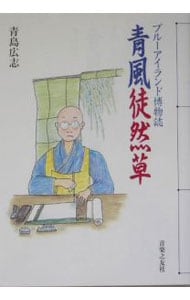 青島広志
ブルーアイランド博物誌
青風徒然草
音楽之友社